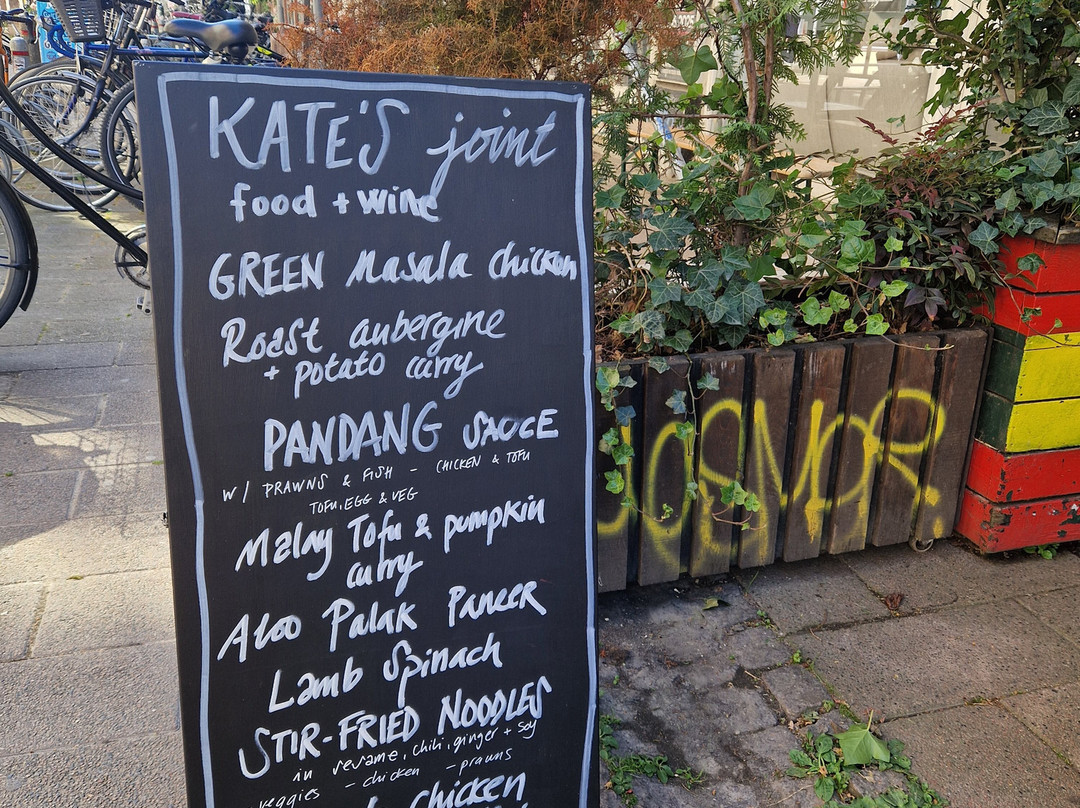 KATE'S joint
food + wine
GREEN Masala chicken
Roast aubergine
+ potato curry
PANDANG SAUCE
W/ PRAWNS & FISH - CHICKEN & TOFU
TOFU, EGG & VEG
Malay Tofu & pumpkin
curry
Aloo Palak Paneer
Lamb Spinach
STIR-FRIED NOODLES
in sesame, chili, ginger + soy
veggies - chicken - prawns
chicken